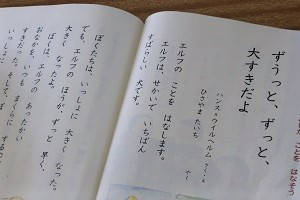 ことを はなそう
ずうっと、ずっと、
大すきだよ
ハンス=ウイルヘルム さく・え
ひさやま たいち やく
エルフの ことを はなします。
エルフは、せかいで いちばん
すばらしい 犬です。
ぼくたちは、いっしょに 大きく なった。
でも、エルフの ほうが、ずっと 早く、
大きく なったよ。
ぼくは、エルフの あったかい
おなかを、いつも まくらに